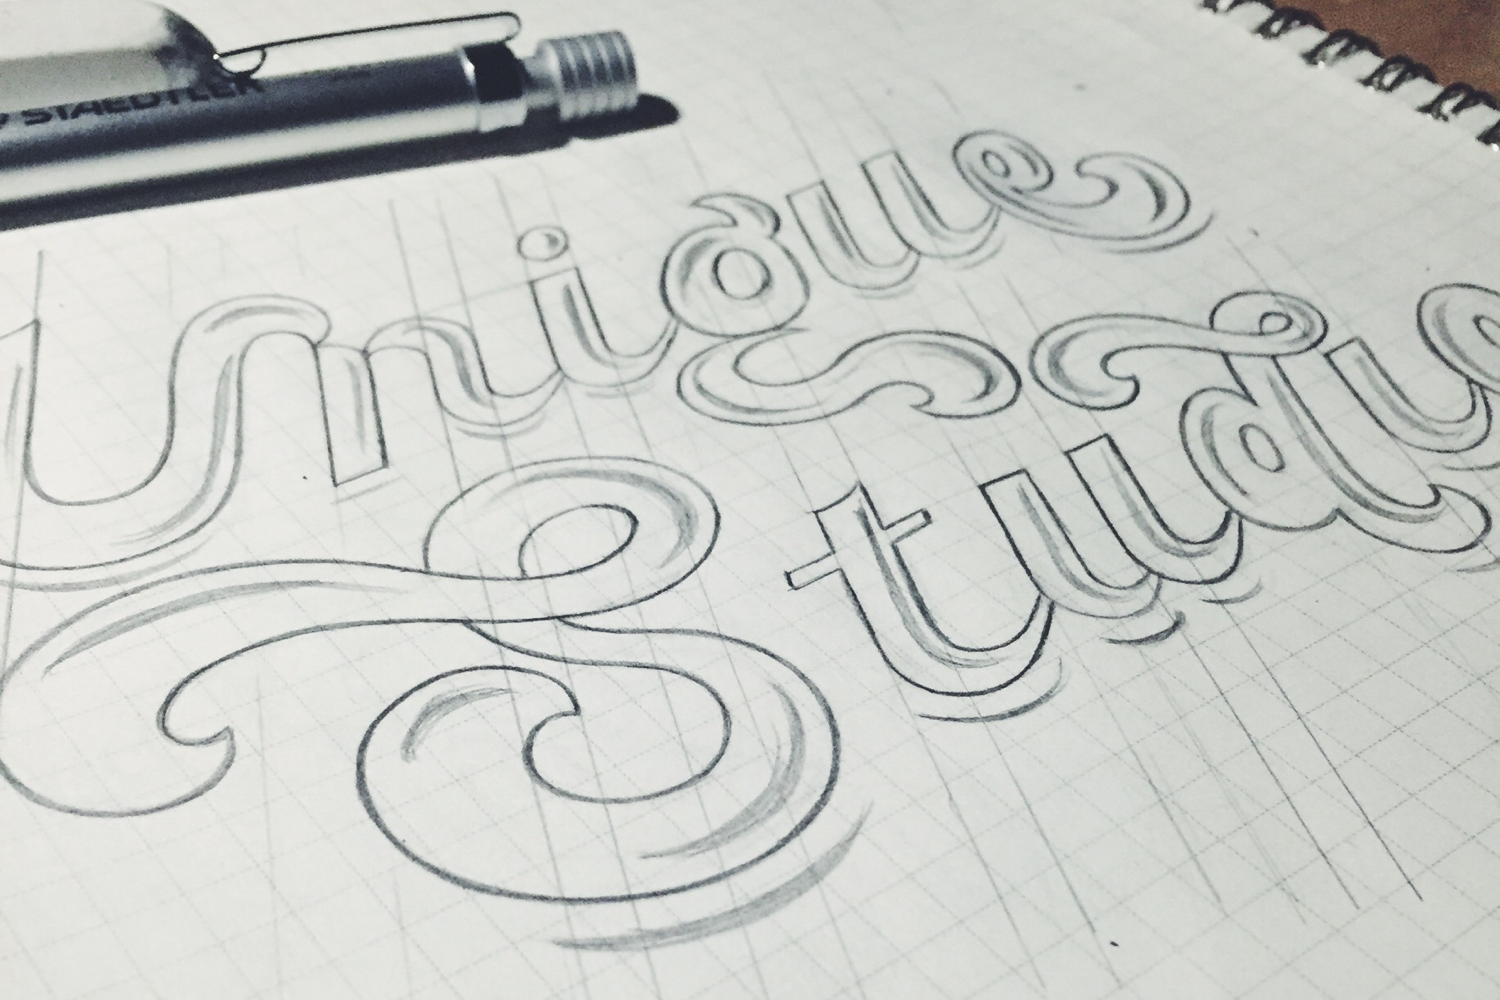 STAEDTLER
Unique
Studio